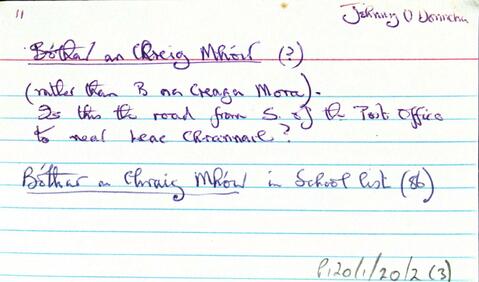 11
Johnny O Donncha
Bóthar an Chreig Mhóir (?)
(rather than B na Creaga Mora).
Is this the road from S. of the Post Office
to near Leac Chrannail?
Bóthar an Chraig Mhóir in School list (86)
P120/1/20/2 (3)